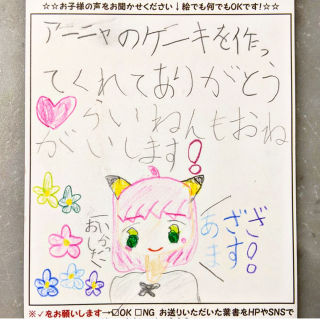 ☆☆お子様の声をお聞かせください↓絵でも何でもOKです!☆☆
アーニャのケーキを作っ
てくれてありがとう
らいねんもおね
がいします!
いかつ
おしした
ざ!!
ざす
あま
※✓をお願いします→☑OK □NG お送りいただいた葉書をHPやSNSで